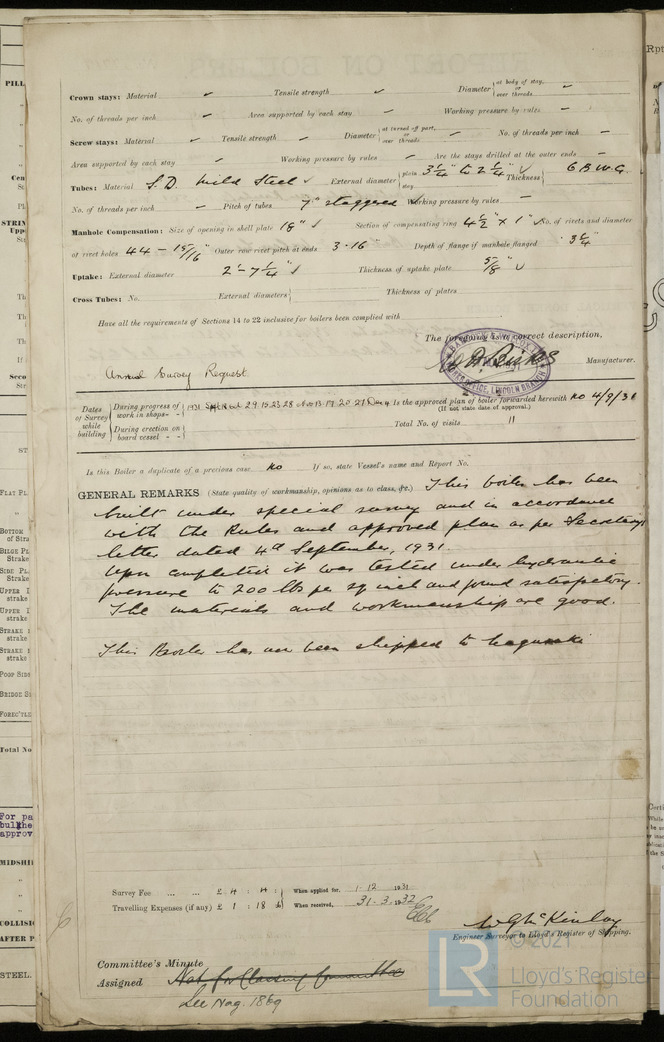 Crown stays: Material ✓ Tensile strength ✓ Diameter { at body of stay, or over threads. –
No. of threads per inch ✓ Area supported by each stay ✓ Working pressure by rules –
Screw stays: Material ✓ Tensile strength ✓ Diameter { at turned off part, or over threads ✓ No. of threads per inch –
Area supported by each stay ✓ Working pressure by rules ✓ Are the stays drilled at the outer ends –
Tubes: Material S.D. Mild Steel ✓ External diameter { plain 3¼" to 2¼" ✓ stay Thickness { 6 B W G.
No. of threads per inch – Pitch of tubes 7" staggered Working pressure by rules –
Manhole Compensation: Size of opening in shell plate 18" ✓ Section of compensating ring 4½" × 1" ✓ No. of rivets and diameter
of rivet holes 44 - 15/16" Outer row rivet pitch at ends 3.16" Depth of flange if manhole flanged 3¼"
Uptake: External diameter 2'-7¼" ✓ Thickness of uptake plate 5/8" ✓
Cross Tubes: No. External diameters { Thickness of plates
Have all the requirements of Sections 14 to 22 inclusive for boilers been complied with
The foregoing is a correct description,
Manufacturer.
LINCOLN BRANCH
Annual Survey Request
Dates of Survey while building { During progress of work in shops - - { 1931 29.15.23.28 Nov 13.17.20.27 Dec 4 Is the approved plan of boiler forwarded herewith no 4/9/31
(If not state date of approval.)
During erection on board vessel - - { Total No. of visits 11
Is this Boiler a duplicate of a previous case No If so, state Vessel's name and Report No.
GENERAL REMARKS (State quality of workmanship, opinions as to class, &c.) This boiler has been
built under special survey and in accordance
with the Rules and approved plan as per Secretary's
letter dated 4th September, 1931
Upon completion it was tested under hydraulic
pressure to 200 lbs per sq inch and found satisfactory.
The materials and workmanship are good.
This Boiler has been shipped to Nagasaki
Survey Fee ... ... £ 4 : 4 : When applied for, 1.12 1931
Travelling Expenses (if any) £ 1 : 18 : 6 When received, 31.3.1932
W G McKinlay
Engineer Surveyor to Lloyd's Register of Shipping.
Committee's Minute
Assigned Not for Classing Committee
See Nag. 1869
© 2021
LR
Lloyd's Register
Foundation